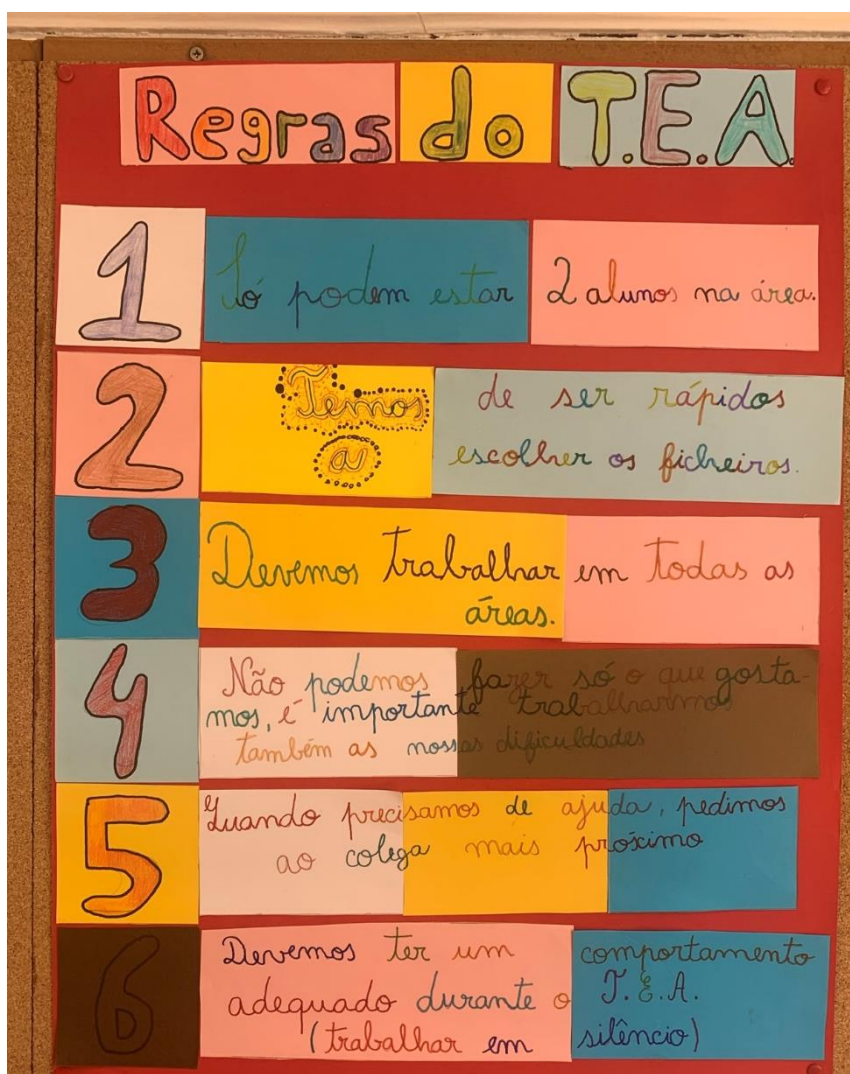 Regras do T.E.A.
1 Só podem estar 2 alunos na área.
2 Temos de ser rápidos
a escolher os ficheiros.
3 Devemos trabalhar em todas as
áreas.
4 Não podemos fazer só o que gosta-
mos, é importante trabalharmos
também as nossas dificuldades
5 Quando precisamos de ajuda, pedimos
ao colega mais próximo
6 Devemos ter um comportamento
adequado durante o T.E.A.
(trabalhar em silêncio)